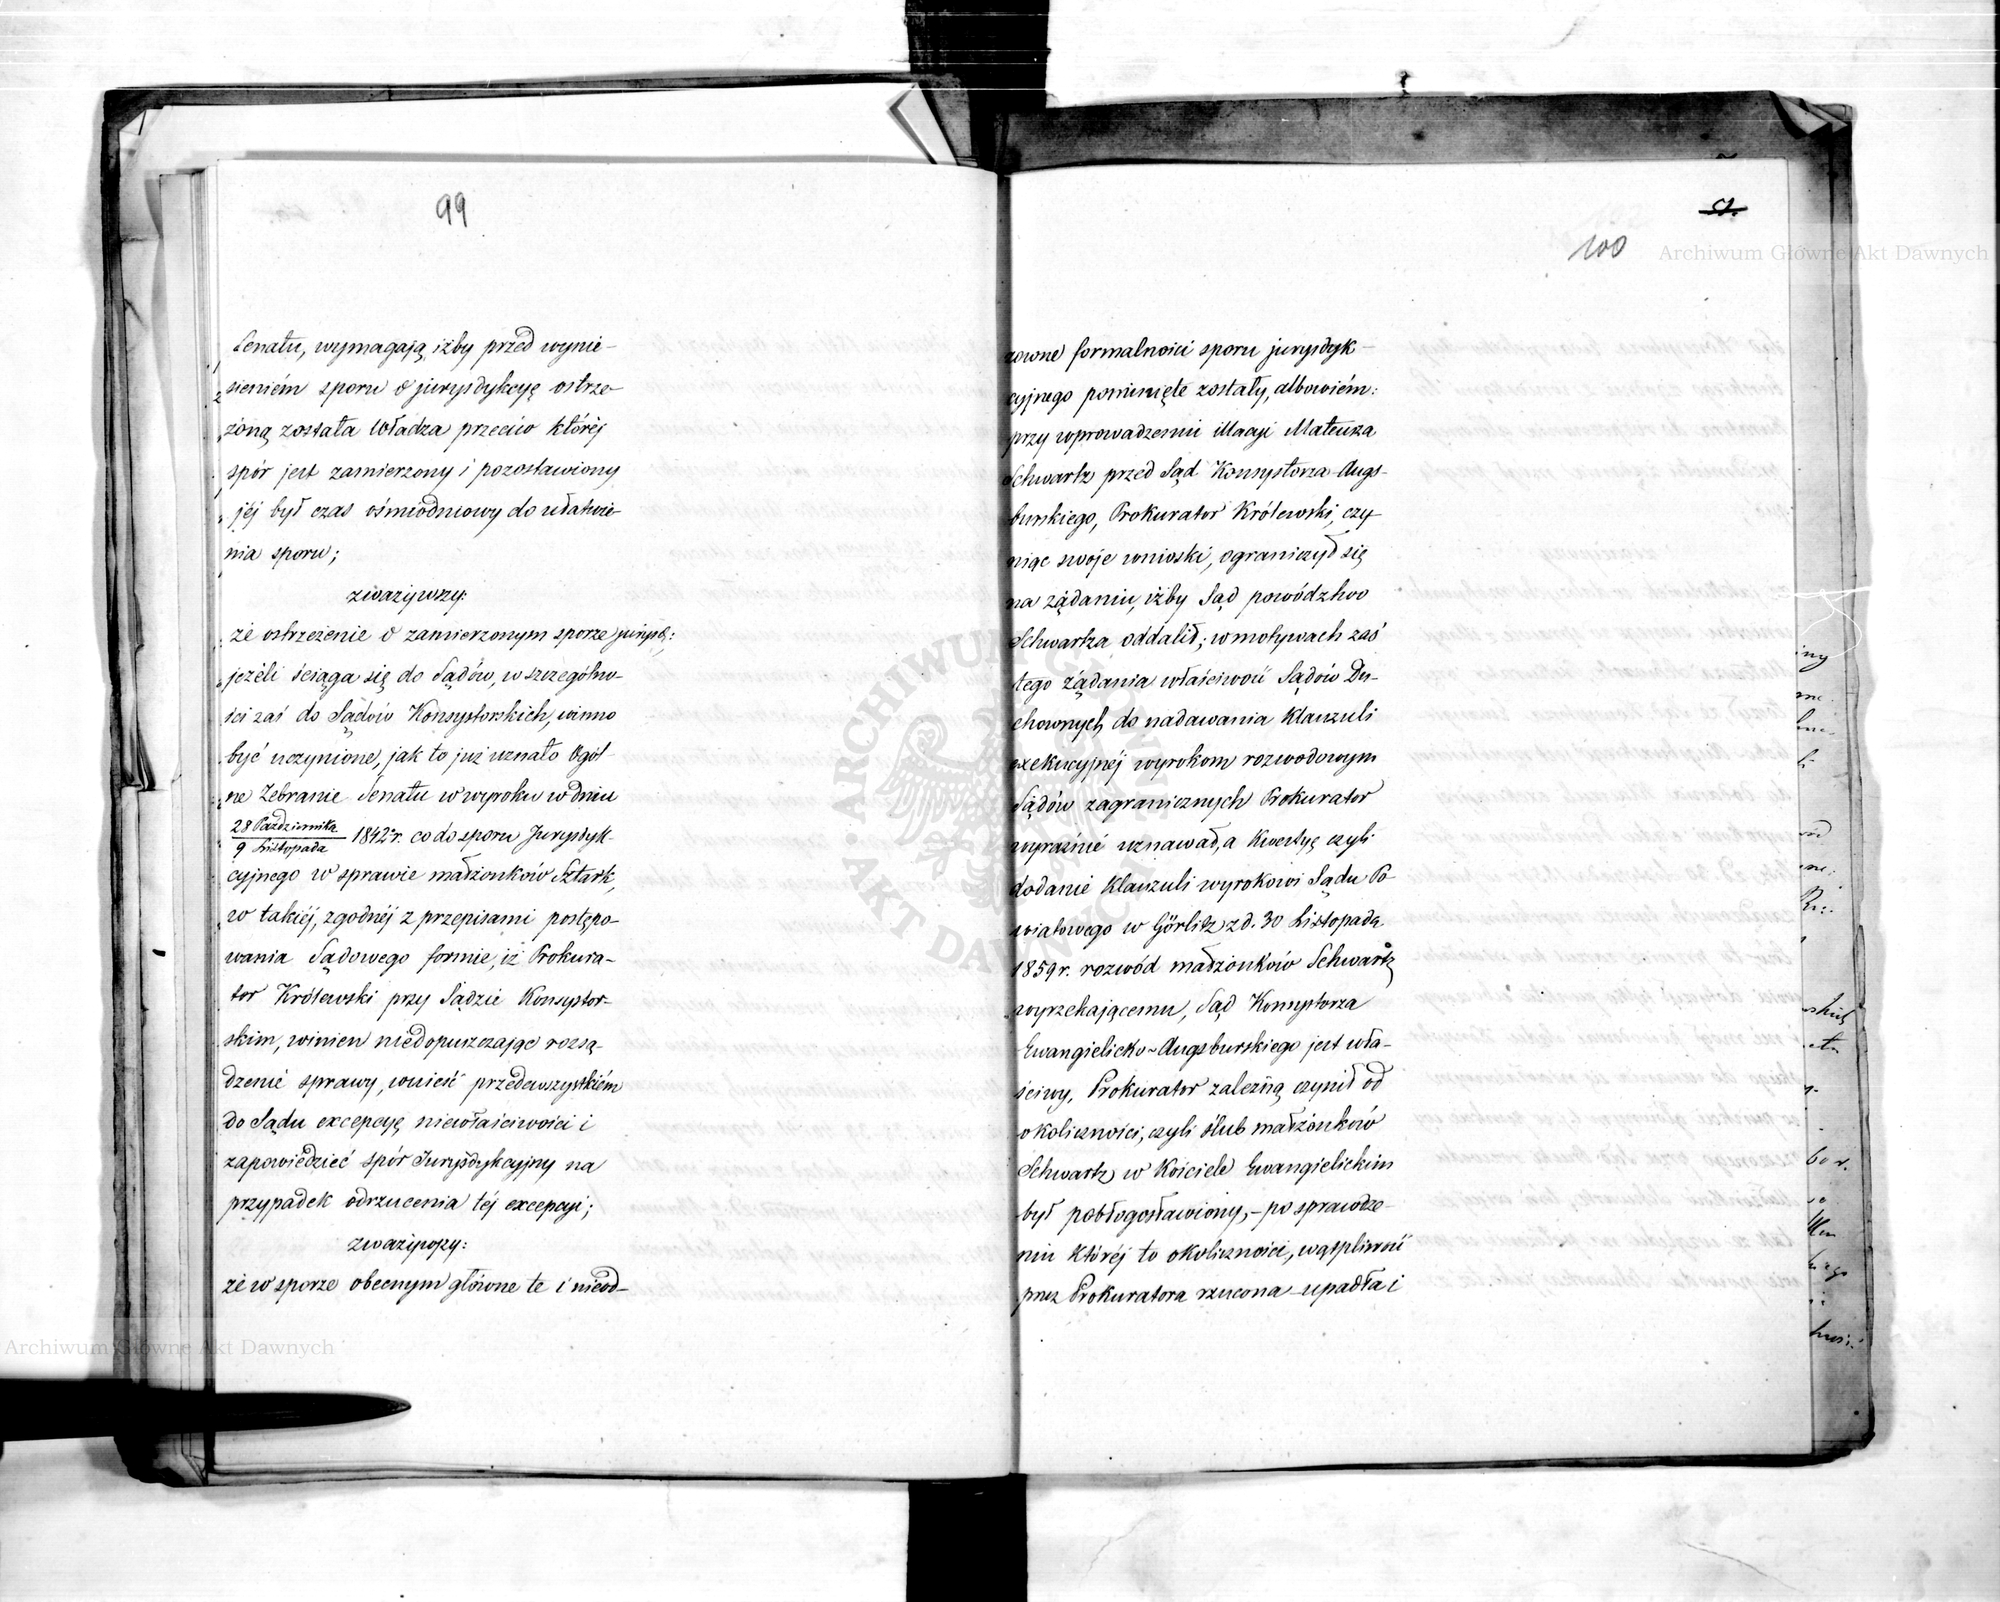 99
Senatu, wymagają iżby przed wynie-
sieniém sporu o jurysdykcyę ostrze-
żoną została Władza przeciw któréj
spór jest zamierzony i pozostawiony
jéj był czas ośmiodniowy do ułatwie-
nia sporu;
zważywszy:
że ostrzeżenie o zamierzonym sporze jurysd:;
jeżeli ściąga się do Sądów, w szczególno-
ści zaś do Sądów Konsystorskich, winno
być uczynione, jak to już uznało Ogól-
ne Zebranie Senatu w wyroku w dniu
28 Października
9 Listopada 1842 r. co do sporu Jurysdyk-
cyjnego w sprawie małżonków Sztark,
w takiéj, zgodnéj z przepisami postępo-
wania Sądowego formie, iż Prokura-
tor Królewski przy Sądzie Konsystor-
skim, winien niedopuszczając rozsą-
dzenie sprawy, wnieść przedewszystkiém
do Sądu excepcyę niewłaściwości i
zapowiedzieć spór Jurysdykcyjny na
przypadek odrzucenia téj excepcyi;
zważywszy:
że w sporze obecnym główne te i nieod-
51.
100
zowne formalności sporu jurysdyk-
cyjnego pominięte zostały, albowiém:
przy wprowadzeniu illacyi Mateusza
Schwartz przed Sąd Konsystorza Augs-
burskiego, Prokurator Królewski, czy-
niąc swoje wnioski, ograniczył się
na żądaniu, iżby Sąd powództwo
Schwartza oddalił; w motywach zaś
tego żądania właściwość Sądów Du-
chownych do nadawania Klauzuli
exekucyjnéj wyrokom rozwodowym
Sądów zagranicznych Prokurator
wyraźnie uznawał, a Kwestyę czyli
dodanie Klauzuli wyrokowi Sądu Po-
wiatowego w Görlitz z d. 30 Listopada
1859 r. rozwód małżonków Schwartz
wyrzekającemu, Sąd Konsystorza
Ewangielicko-Augsburskiego jest wła-
ściwy, Prokurator zależną czynił od
okoliczności, czyli ślub małżonków
Schwartz w Kościele Ewangielickim
był pobłogosławiony,- po sprawdze-
niu któréj to okoliczności, wątpliwość
przez Prokuratora rzucona upadła i
Archiwum Główne Akt Dawnych
Archiwum Główne Akt Dawnych
ARCHIWUM GŁÓWNE AKT DAWNYCH